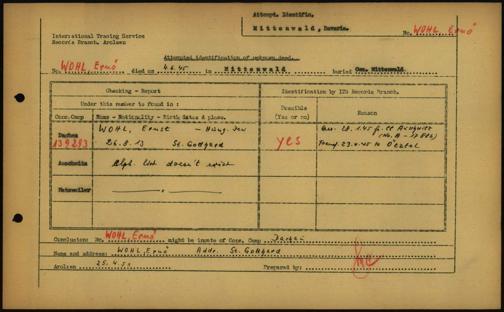 Attempt. Identific.
Mittenwald, Bavaria.
International Tracing Service
Records Branch, Arolsen
No. WOHL Ernő
Attempted identification of unknown dead.
No. WOHL Ernő died on 4.6.45 in Mittenwald buried Cem. Mittenwald.
Checking - Report
Identification by ITS Records Branch.
Under this number is found in:
Possible
(Yes or no)
Reason
Conc. Camp
Name - Nationality - Birth dates & place.
Dachau
139293
WOHL, Ernst - Hung. Jew
26.8.13 St. Gotthard
yes
Arr. 28.1.45 fr. CC Auschwitz
Transf. 23.4.45 to Ötztal
Auschwitz
Alph. list doesn't exist
Natzweiler
Conclusion: No. WOHL, Ernő might be inmate of Conc. Camp Dachau
Name and address: WOHL, Ernő Addr. St. Gotthard
Arolsen 25.4.50
Prepared by: